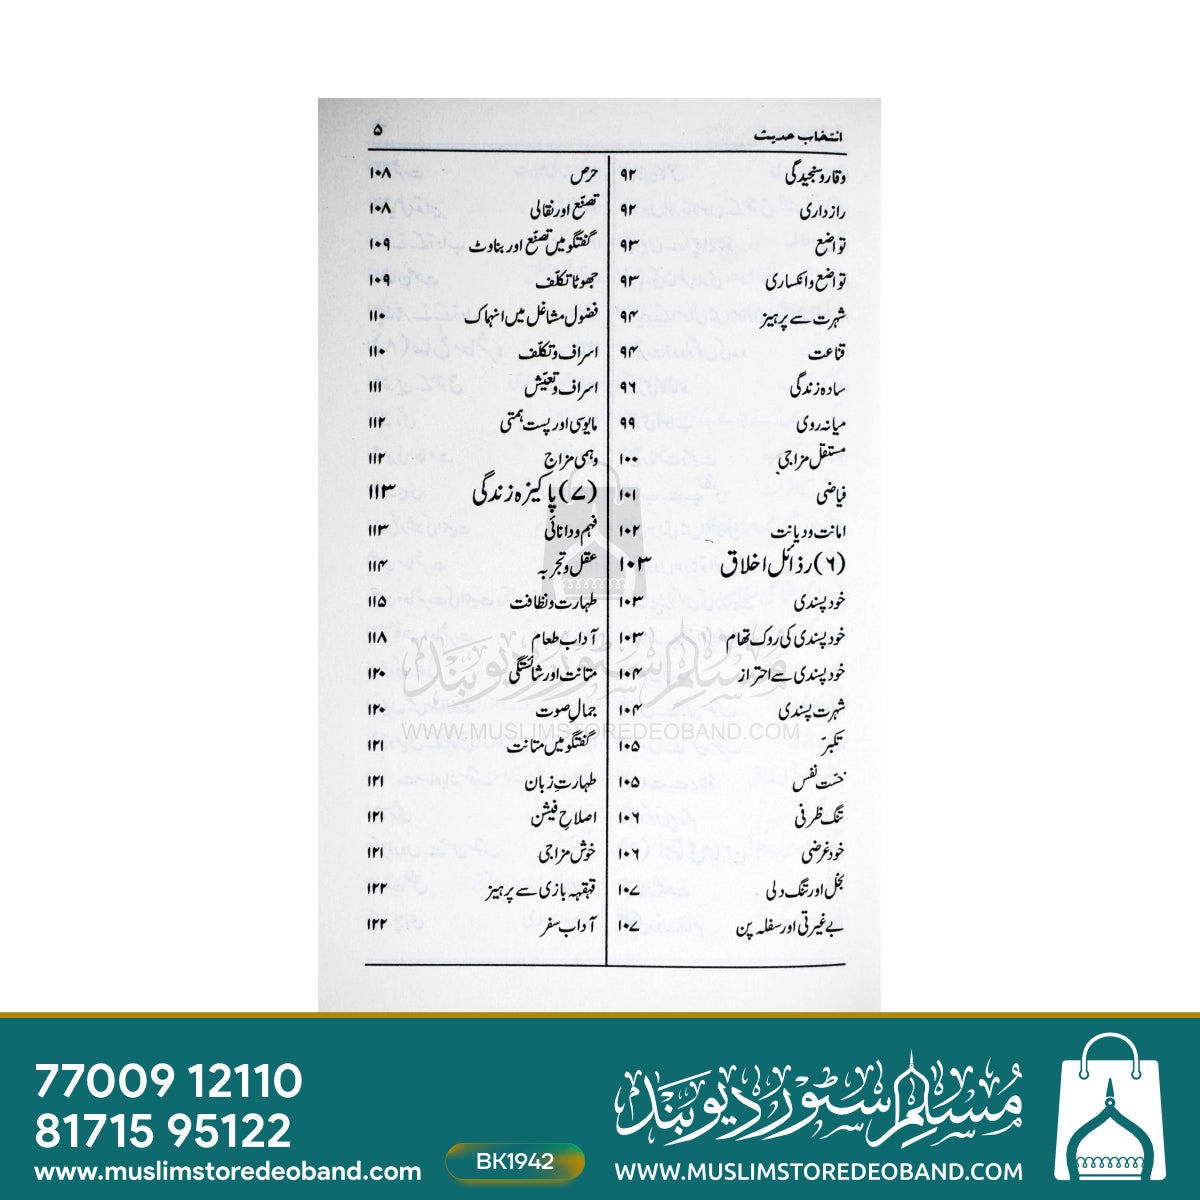 انتخاب حدیث ۵
وقار و سنجیدگی ۹۲
رازداری ۹۲
تواضع ۹۳
تواضع و انکساری ۹۳
شہرت سے پرہیز ۹۴
قناعت ۹۴
سادہ زندگی ۹۶
میانہ روی ۹۹
مستقل مزاجی ۱۰۰
فیاضی ۱۰۱
امانت و دیانت ۱۰۲
(۶) رذائل اخلاق ۱۰۳
خود پسندی ۱۰۳
خود پسندی کی روک تھام ۱۰۳
خود پسندی سے احتراز ۱۰۴
شہرت پسندی ۱۰۴
تکبّر ۱۰۵
خسّت نفس ۱۰۵
تنگ ظرفی ۱۰۶
خود غرضی ۱۰۶
بخل اور تنگ دلی ۱۰۷
بے غیرتی اور سفلہ پن ۱۰۷
حرص ۱۰۸
تصنّع اور نقالی ۱۰۸
گفتگو میں تصنّع اور بناوٹ ۱۰۹
جھوٹا تکلّف ۱۰۹
فضول مشاغل میں انہماک ۱۱۰
اسراف و تکلّف ۱۱۰
اسراف و تعیّش ۱۱۱
مایوسی اور پست ہمتی ۱۱۲
وہمی مزاج ۱۱۲
(۷) پاکیزہ زندگی ۱۱۳
فہم و دانائی ۱۱۳
عقل و تجربہ ۱۱۴
طہارت و نظافت ۱۱۵
آداب طعام ۱۱۸
متانت اور شائستگی ۱۲۰
جمالِ صوت ۱۲۰
گفتگو میں متانت ۱۲۱
طہارتِ زبان ۱۲۱
اصلاحِ فیشن ۱۲۱
خوش مزاجی ۱۲۱
قہقہہ بازی سے پرہیز ۱۲۲
آداب سفر ۱۲۲
مُسلم سٹور دیوبند
WWW.MUSLIMSTOREDEOBAND.COM
77009 12110
81715 95122
www.muslimstoredeoband.com
BK1942
مُسلم سٹور دیوبند
WWW.MUSLIMSTOREDEOBAND.COM